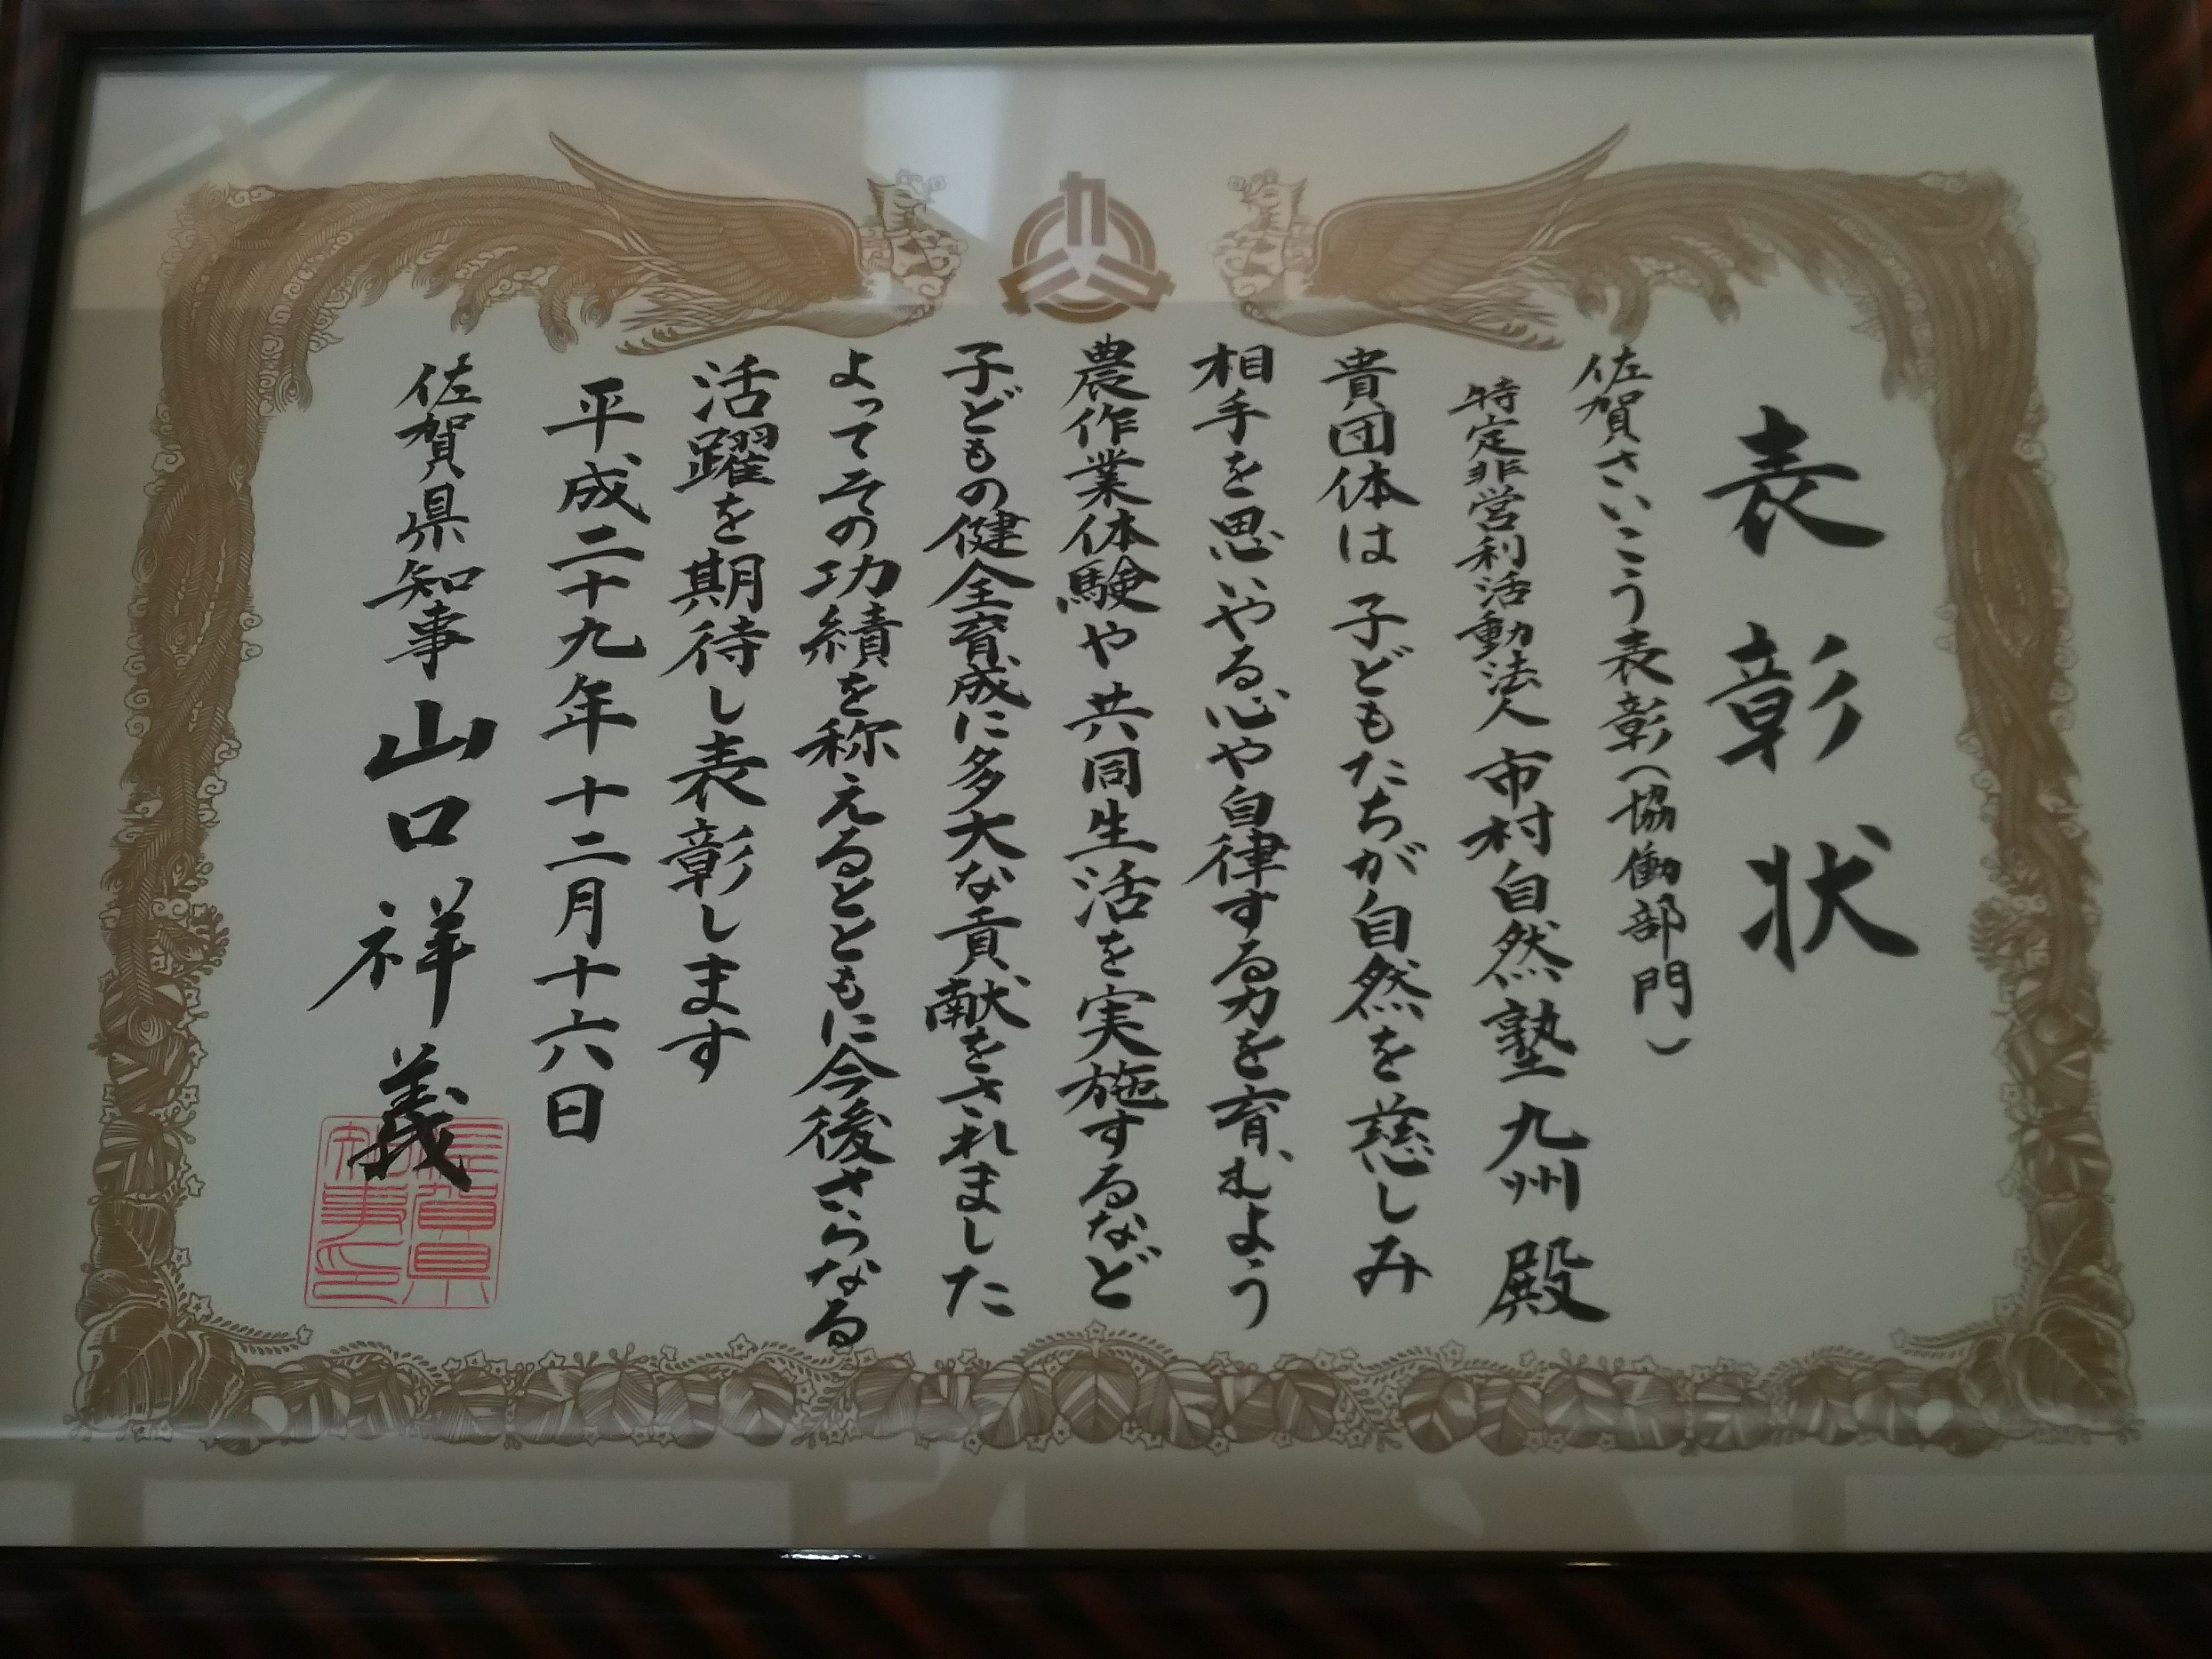 表彰状
佐賀さいこう表彰（協働部門）
特定非営利活動法人 市村自然塾九州 殿
貴団体は 子どもたちが自然を慈しみ
相手を思いやる心や自律する力を育むよう
農作業体験や共同生活を実施するなど
子どもの健全育成に多大な貢献をされました
よってその功績を称えるとともに今後さらなる
活躍を期待し表彰します
平成二十九年十二月十六日
佐賀県知事 山口祥義
佐賀県
知事之印